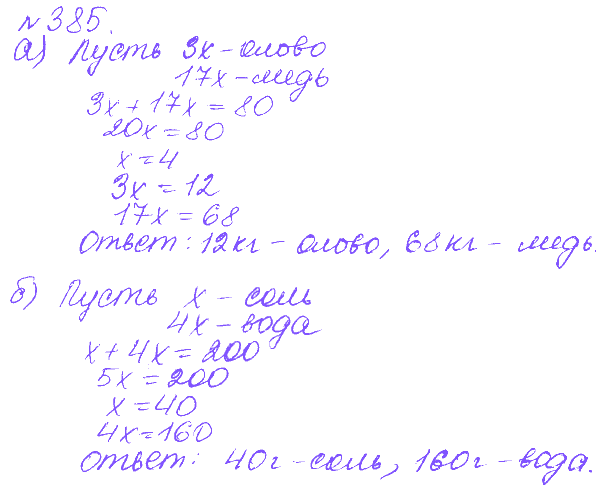 №385.
а) Пусть 3x - олово
17x - медь
3x + 17x = 80
20x = 80
x = 4
3x = 12
17x = 68
Ответ: 12кг - олово, 68кг - медь.
б) Пусть x - соль
4x - вода
x + 4x = 200
5x = 200
x = 40
4x = 160
Ответ: 40г - соль, 160г - вода.